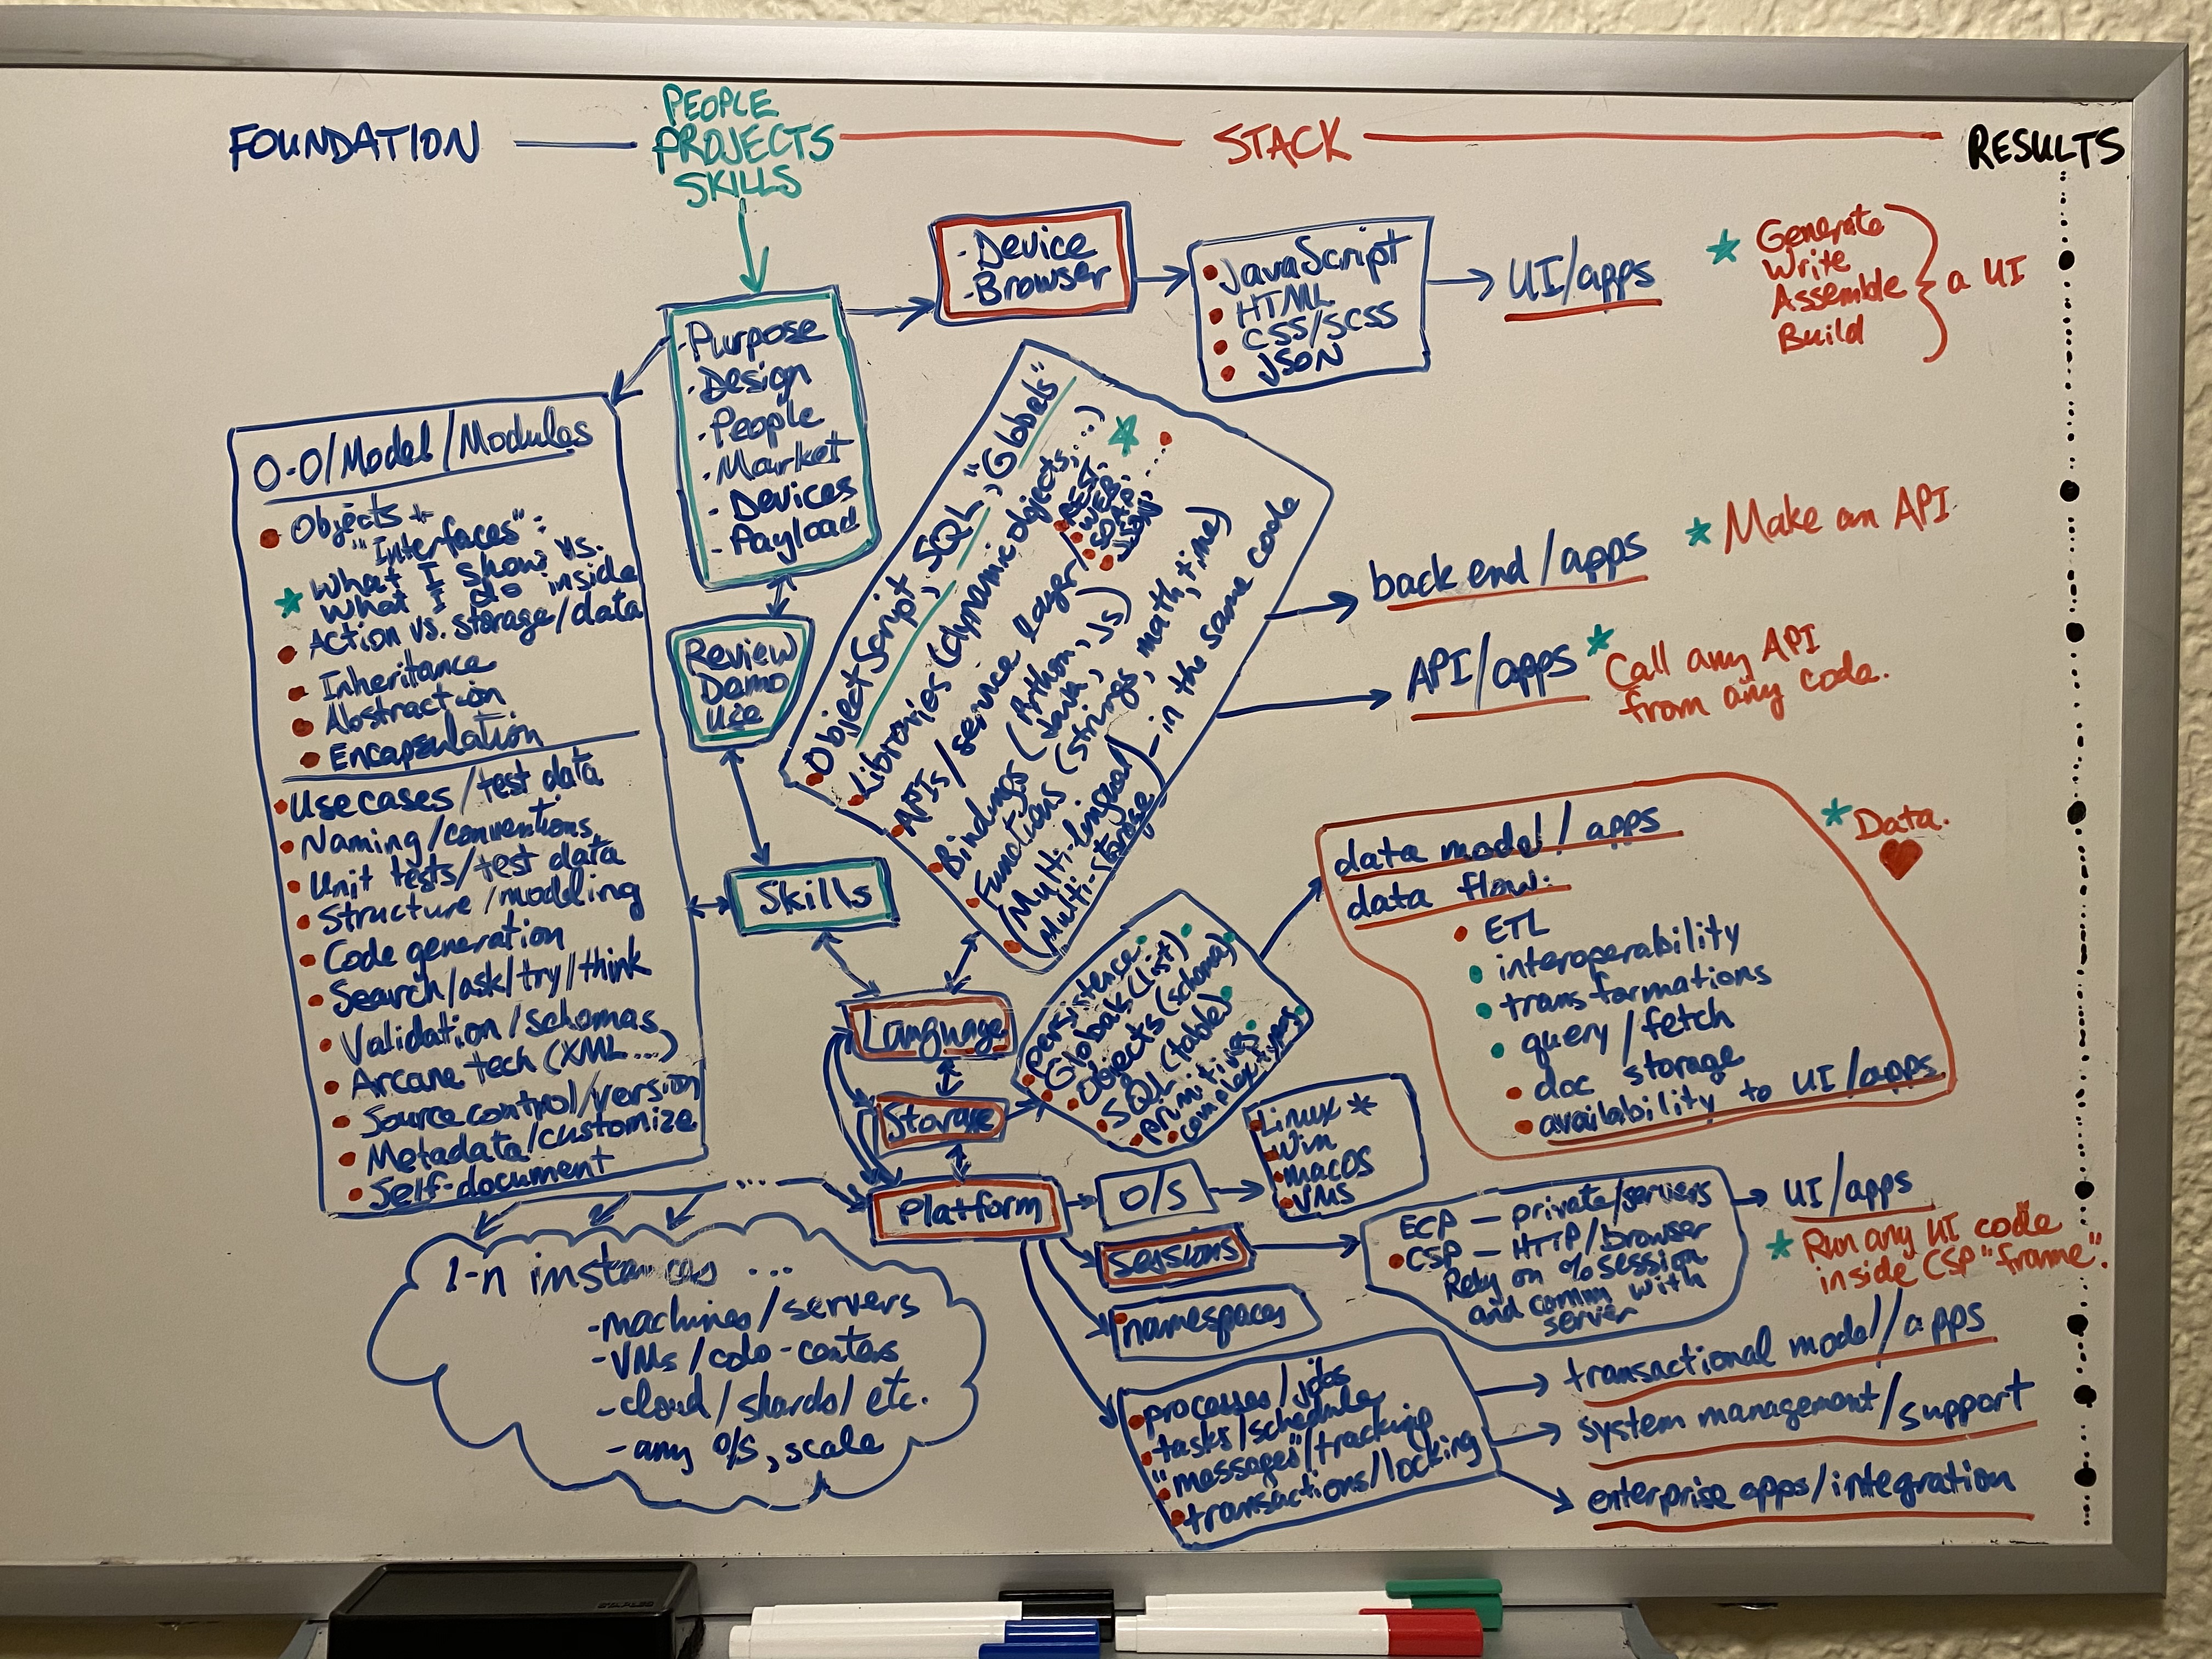 FOUNDATION
PEOPLE
PROJECTS
SKILLS
STACK
RESULTS
- Purpose
- Design
- People
- Market
- Devices
- Payload
- Device
- Browser
JavaScript
HTML
CSS/SCSS
JSON
UI/apps
Generate
Write
Assemble
Build
a UI
O-O/Model/Modules
Objects +
"Interfaces":
What I show vs.
What I do inside
Action vs. storage/data
Inheritance
Abstraction
Encapsulation
Use cases/test data
Naming/conventions
Unit tests/test data
Structure/modeling
Code generation
Search/ask/try/think
Validation/schemas
Arcane tech (XML...)
Source control/version
Metadata/customize
Self-document
Review
Demo
Use
Skills
ObjectScript, SQL, "Globals"
Libraries (dynamic objects,...)
APIs/service layer/
REST.
WEB.
SOAP.
JSON.
Bindings (Python, Java, JS)
Functions (strings, math, time)
(Multi-lingual)
(Multi-storage)
— in the same code
back end/apps
Make an API
API/apps
Call any API
from any code.
Language
Storage
Platform
Persistence
Globals (list)
Objects (schema)
SQL (table)
primitives
complex types
data model/apps
data flow:
ETL
interoperability
transformations
query/fetch
doc storage
availability to UI/apps
Data.
O/S
Linux *
Win
macOS
VMS
Sessions
ECP — private/servers
CSP — HTTP/browser
Rely on %session
and comm with
server
UI/apps
Run any UI code
inside CSP "frame".
namespaces
processes/jobs
tasks/schedule
"messages"/tracking
transactions/locking
transactional model/apps
system management/support
enterprise apps/integration
...
1-n instances ...
- machines/servers
- VMs/colo-centers
- cloud/shards/etc.
- any O/S, scale
STAPLES